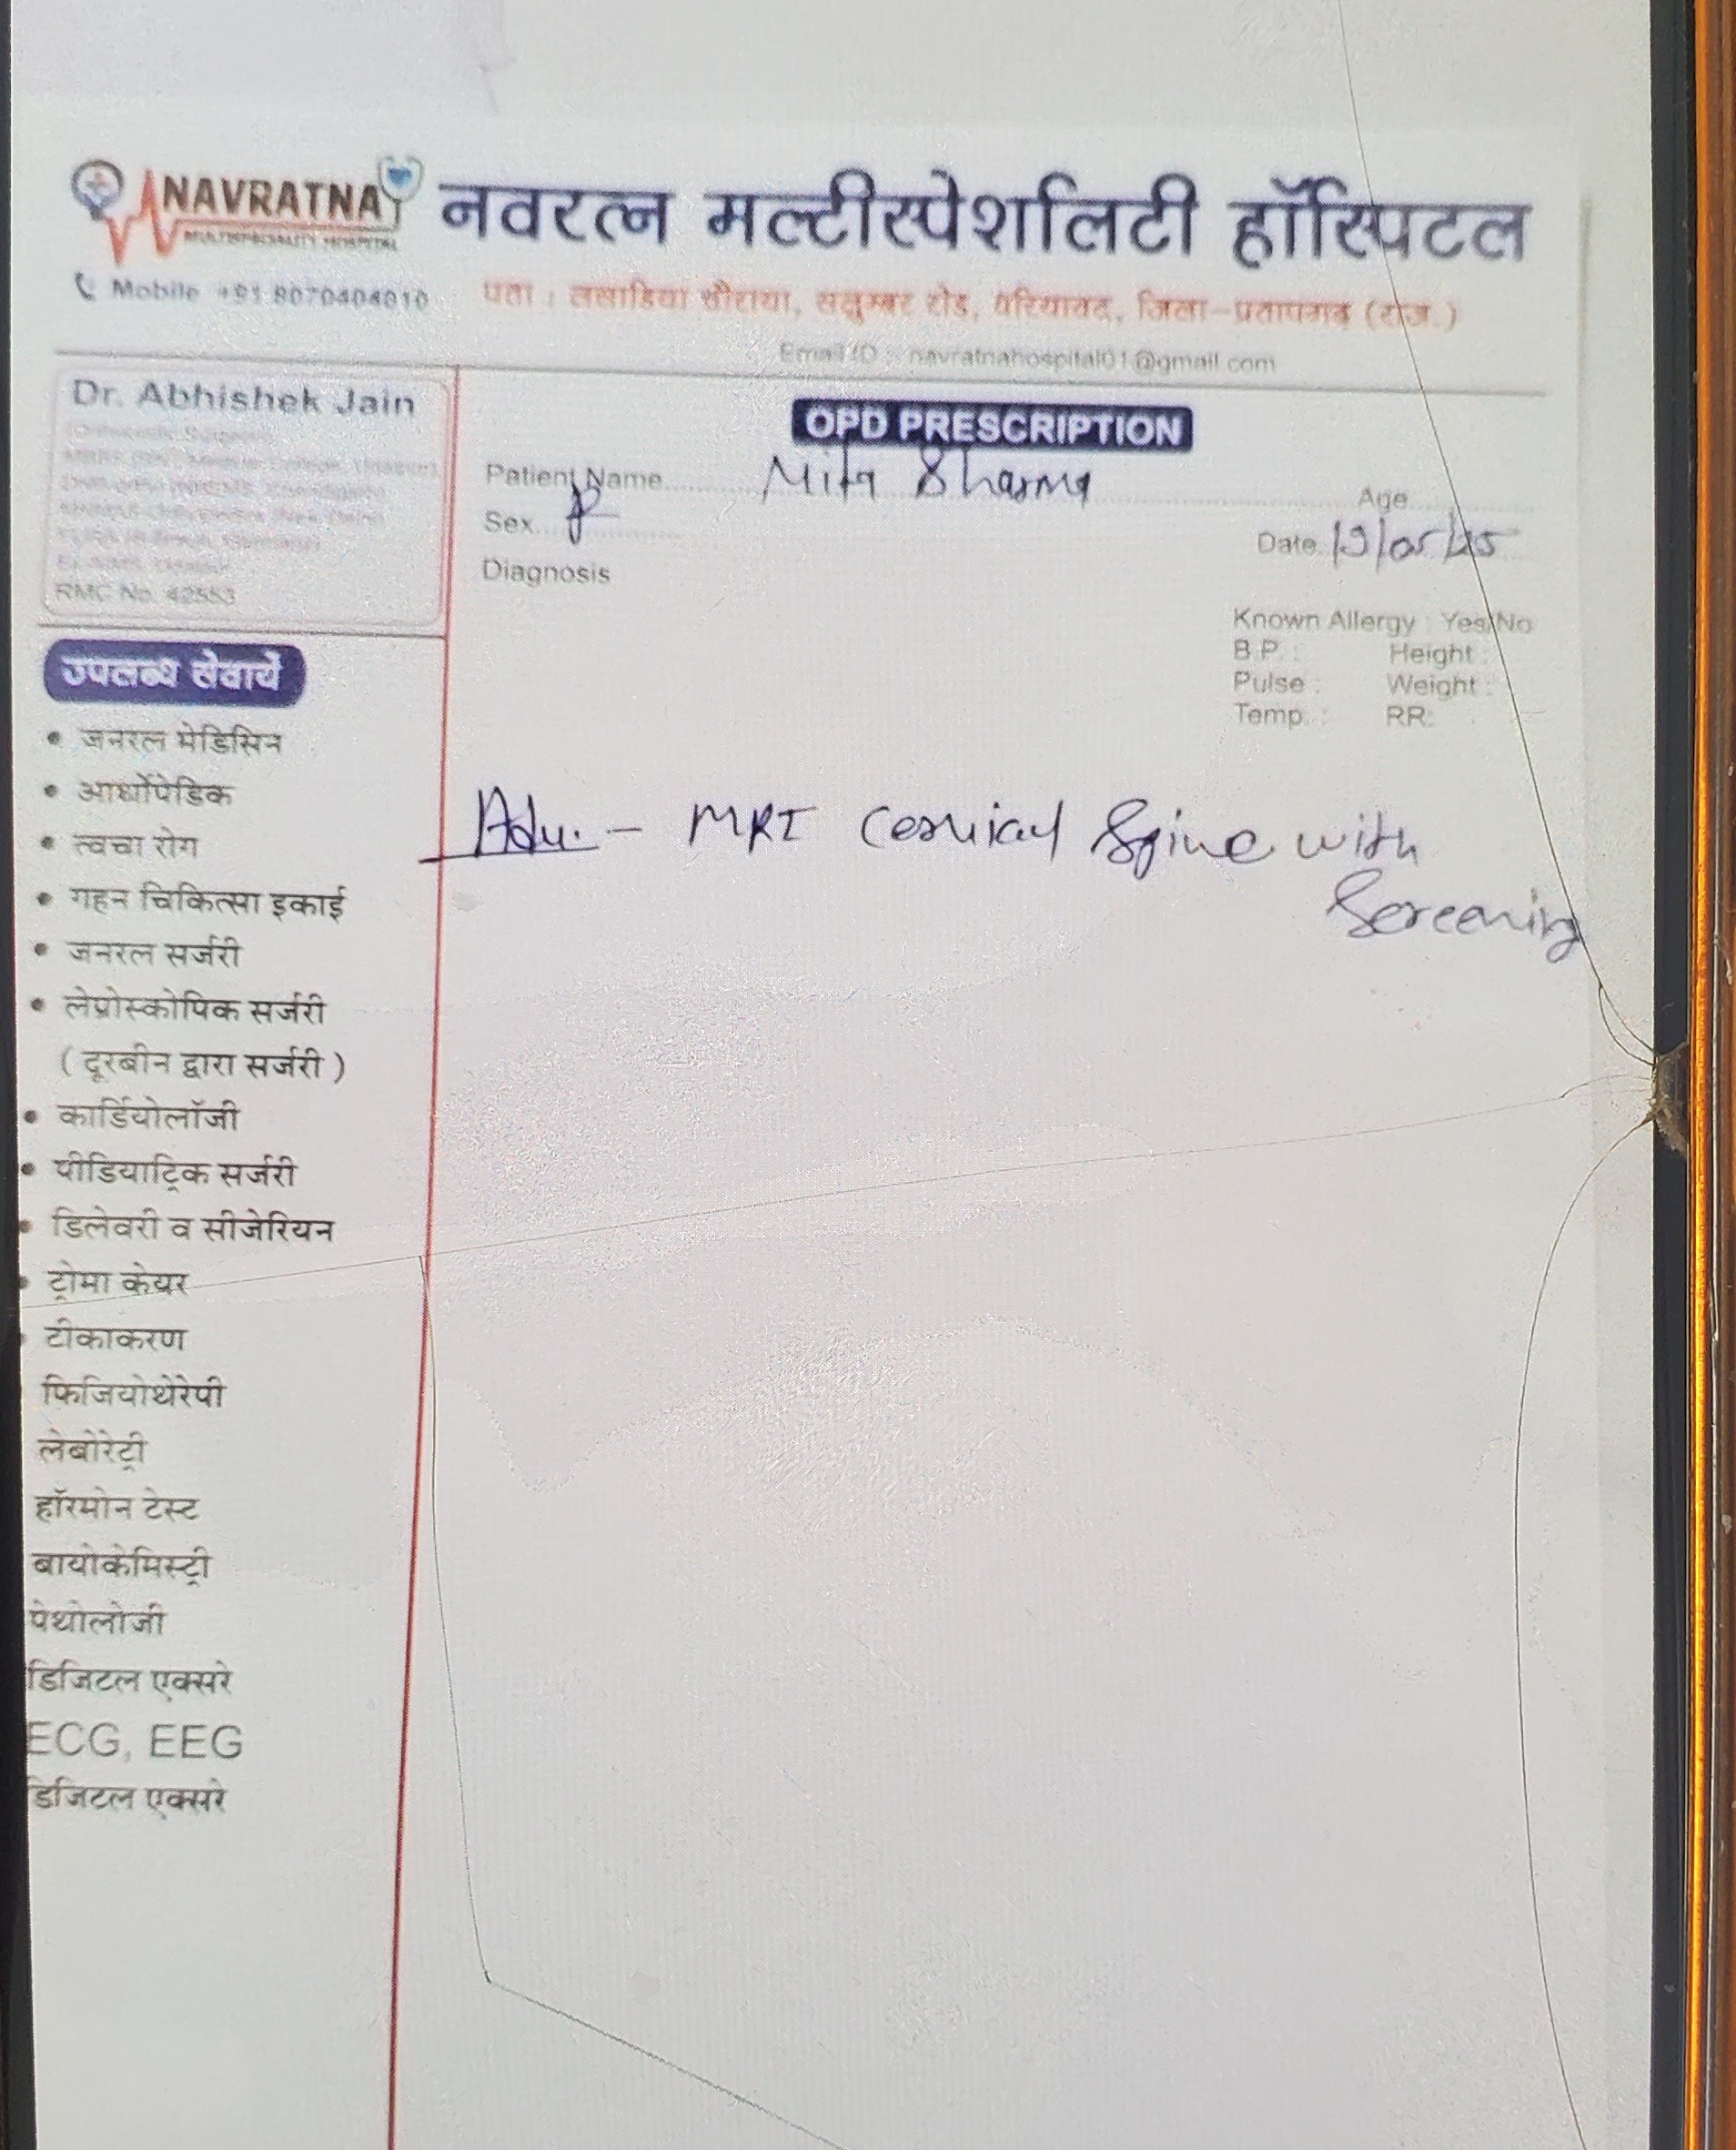 NAVRATNA
MULTISPECIALITY HOSPITAL
नवरत्न मल्टीस्पेशलिटी हॉस्पिटल
Mobile +91 8070404010
पता : लसाडिया चौराया, सलुम्बर रोड, धरियावद, जिला-प्रतापगढ़ (राज.)
Email ID : navratnahospital01@gmail.com
Dr. Abhishek Jain
RMC No. 42553
OPD PRESCRIPTION
Patient Name Mita Sharma
Age
Sex F
Date 19/05/25
Diagnosis
Known Allergy : Yes/No
B.P. : Height :
Pulse : Weight :
Temp. : RR:
Adv. - MRI Cervical Spine with
Screening
उपलब्ध सेवायें
• जनरल मेडिसिन
• आर्थोपेडिक
• त्वचा रोग
• गहन चिकित्सा इकाई
• जनरल सर्जरी
• लेप्रोस्कोपिक सर्जरी
( दूरबीन द्वारा सर्जरी )
• कार्डियोलॉजी
• पीडियाट्रिक सर्जरी
• डिलेवरी व सीजेरियन
• ट्रोमा केयर
टीकाकरण
फिजियोथेरेपी
लेबोरेट्री
हॉरमोन टेस्ट
बायोकेमिस्ट्री
पेथोलोजी
डिजिटल एक्सरे
ECG, EEG
डिजिटल एक्सरे